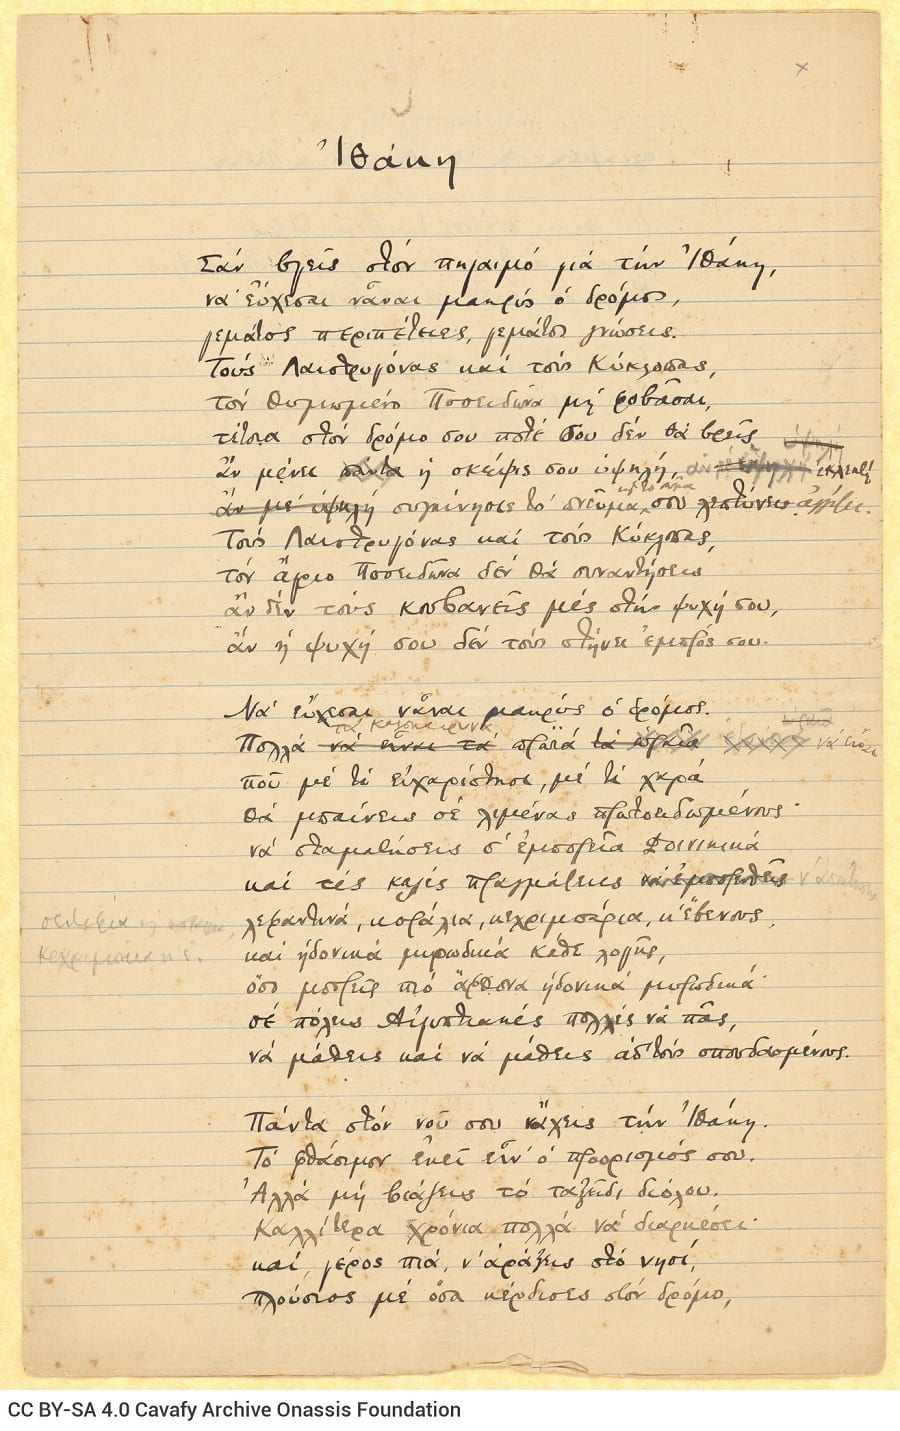 Ἰθάκη
Σάν βγεῖς στόν πηγαιμό γιά τήν Ἰθάκη,
νά εὔχεσαι νἆναι μακρύς ὁ δρόμος,
γεμάτος περιπέτειες, γεμάτος γνώσεις.
Τούς Λαιστρυγόνας καί τούς Κύκλωπας,
τόν θυμωμένο Ποσειδῶνα μή φοβᾶσαι,
τέτοια στόν δρόμο σου ποτέ σου δέν θά βρεῖς
ὑψηλή
ἄν μένει πάντα ἡ σκέψις σου ὑψηλή, ἐκλεκτή
ἄν μέ ὑψηλή συγκίνησις τό πνεῦμα σου λεπτύνεις ἀγγίζει.
καί τό σῶμα
Τούς Λαιστρυγόνας καί τούς Κύκλωπας,
τόν ἄγριο Ποσειδῶνα δέν θά συναντήσεις
ἄν δέν τούς κουβανεῖς μές στήν ψυχή σου,
ἄν ἡ ψυχή σου δέν τούς στήνει ἐμπρός σου.
Νά εὔχεσαι νἆναι μακρύς ὁ δρόμος.
τά καλοκαιρινά
Πολλά νά εἶναι τά πρωϊά νά εἶναι
πού μέ τί εὐχαρίστησι, μέ τί χαρά
θά μπαίνεις σέ λιμένας πρωτοειδωμένους·
νά σταματήσεις σ' ἐμπορεῖα Φοινικικά
καί τές καλές πραγμάτειες νά ἐμπορευθεῖς ν' ἀποκτήσεις
σεντέφια
λεφαντινά, κοράλια, κεχριμπάρια, κ' ἔβενους,
καί ἡδονικά μυρωδικά κάθε λογῆς,
ὅσο μπορεῖς πιό ἄφθονα ἡδονικά μυρωδικά·
σέ πόλεις Αἰγυπτιακές πολλές νά πᾶς,
νά μάθεις καί νά μάθεις ἀπ' τούς σπουδασμένους.
Πάντα στόν νοῦ σου νἄχεις τήν Ἰθάκη.
Τό φθάσιμον ἐκεῖ εἶν' ὁ προορισμός σου.
Ἀλλά μή βιάζεις τό ταξεῖδι διόλου.
Καλλίτερα χρόνια πολλά νά διαρκέσει·
καί, γέρος πιά, ν' ἀράξεις στό νησί,
πλούσιος μέ ὅσα κέρδισες στόν δρόμο,
CC BY-SA 4.0 Cavafy Archive Onassis Foundation